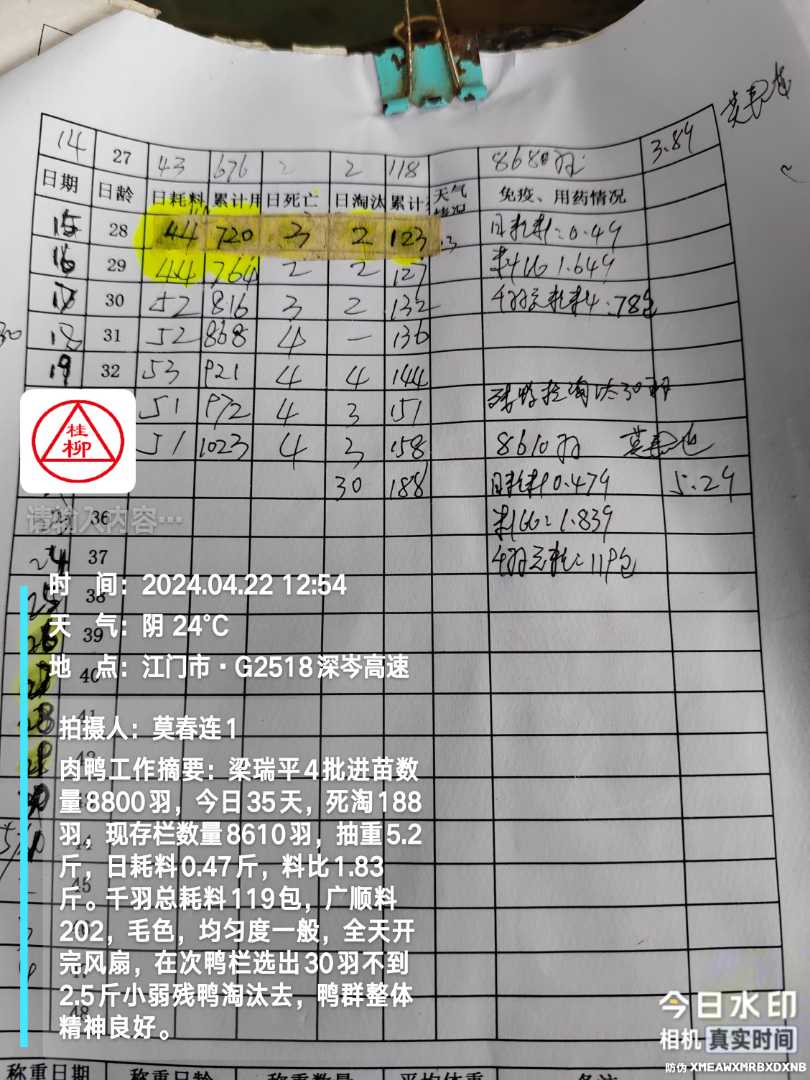 14 27 43 676 2 2 118 8680羽 3.89
日期 日龄 日耗料 累计用 日死亡 日淘汰 累计 天气情况 免疫、用药情况
莫春连
15 28 44 720 3 2 123 日耗料:0.49
16 29 44 764 2 2 127 料比1.649
17 30 52 816 3 2 132 千羽总耗料:78包
18 31 52 868 4 一 136
19 32 53 921 4 4 144
51 972 4 3 151 淘汰30羽
51 1023 4 3 158 8610羽 莫春连
30 188 日耗料0.479 5.29
36 料比:1.839
24 37 千羽总耗:119包
25 38
26 39
27 40
28 41
29 42
30
44
45
47
48
桂柳
请输入内容…
时 间：2024.04.22 12:54
天 气：阴 24℃
地 点：江门市·G2518深岑高速
拍摄人：莫春连1
肉鸭工作摘要：梁瑞平4批进苗数
量8800羽，今日35天，死淘188
羽，现存栏数量8610羽，抽重5.2
斤，日耗料0.47斤，料比1.83
斤。千羽总耗料119包，广顺料
202，毛色，均匀度一般，全天开
完风扇，在次鸭栏选出30羽不到
2.5斤小弱残鸭淘汰去，鸭群整体
精神良好。
今日水印
相机 真实时间
防伪 XMEAWXMRBXDXNB
称重日期 称重日龄 称重数量 平均体重 备注